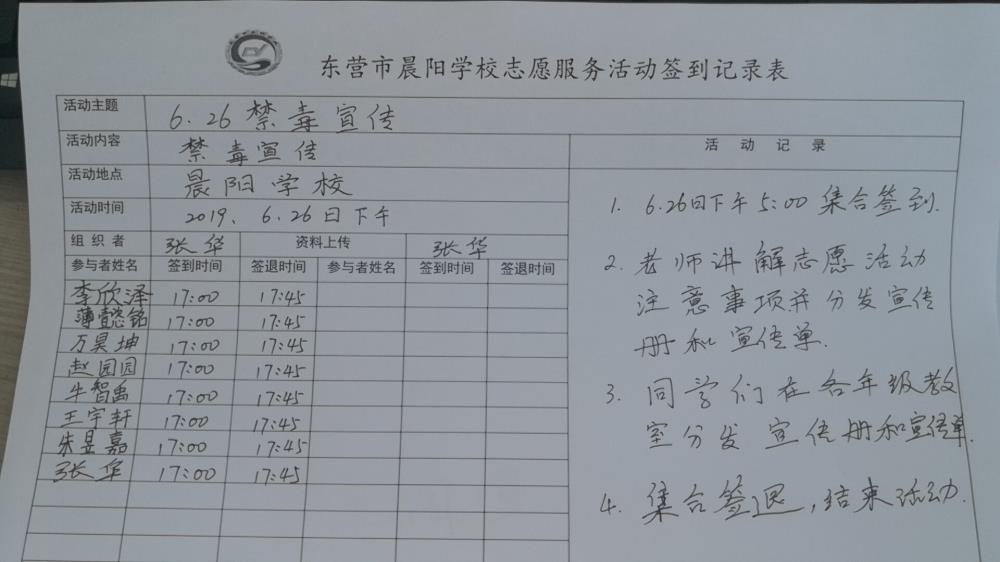 东营市晨阳学校志愿服务活动签到记录表
活动主题 6.26禁毒宣传
活动内容 禁毒宣传 活动记录
活动地点 晨阳学校
活动时间 2019.6.26日下午
组织者 张华 资料上传 张华
参与者姓名 签到时间 签退时间 参与者姓名 签到时间 签退时间
李欣泽 17:00 17:45
薄懿铭 17:00 17:45
万昊坤 17:00 17:45
赵园园 17:00 17:45
牛智禹 17:00 17:45
王宇轩 17:00 17:45
朱昱嘉 17:00 17:45
张华 17:00 17:45
1. 6.26日下午5:00集合签到.
2. 老师讲解志愿活动
注意事项并分发宣传
册和宣传单.
3. 同学们在各年级教
室分发宣传册和宣传单.
4. 集合签退,结束活动.